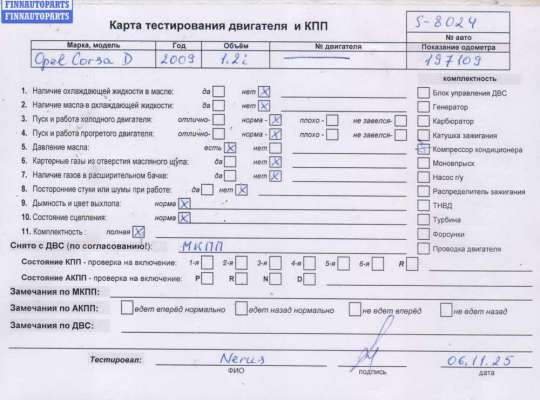 FINNAUTOPARTS
FINNAUTOPARTS
FINNAUTOPARTS
Карта тестирования двигателя и КПП
S-8024
№ авто
Марка, модель Год Объём № двигателя Показание одометра
Opel Corsa D 2009 1.2i 197109
комплектность
1. Наличие охлаждающей жидкости в масле: да нет X
2. Наличие масла в охлаждающей жидкости: да нет X
3. Пуск и работа холодного двигателя: отлично- норма - X плохо - не завелся-
4. Пуск и работа прогретого двигателя: отлично- норма - X плохо - не завелся-
5. Давление масла: есть X нет
6. Картерные газы из отверстия масляного щупа: да нет X
7. Наличие газов в расширительном бачке: да нет X
8. Посторонние стуки или шумы при работе: да нет X
9. Дымность и цвет выхлопа: норма X
10. Состояние сцепления: норма X
11. Комплектность : полная X
Блок управления ДВС
Генератор
Карбюратор
Катушка зажигания
Компрессор кондиционера
Моновпрыск
Насос г/у
Распределитель зажигания
ТНВД
Турбина
Форсунки
Проводка двигателя
Снято с ДВС (по согласованию!): МКПП
Состояние КПП - проверка на включение: 1-я 2-я 3-я 4-я 5-я 6-я R
Состояние АКПП - проверка на включение: P R N D
Замечания по МКПП:
Замечания по АКПП: едет вперёд нормально едет назад нормально не едет вперёд не едет назад
Замечания по ДВС:
Тестировал: Nerus 06.11.25
ФИО подпись дата